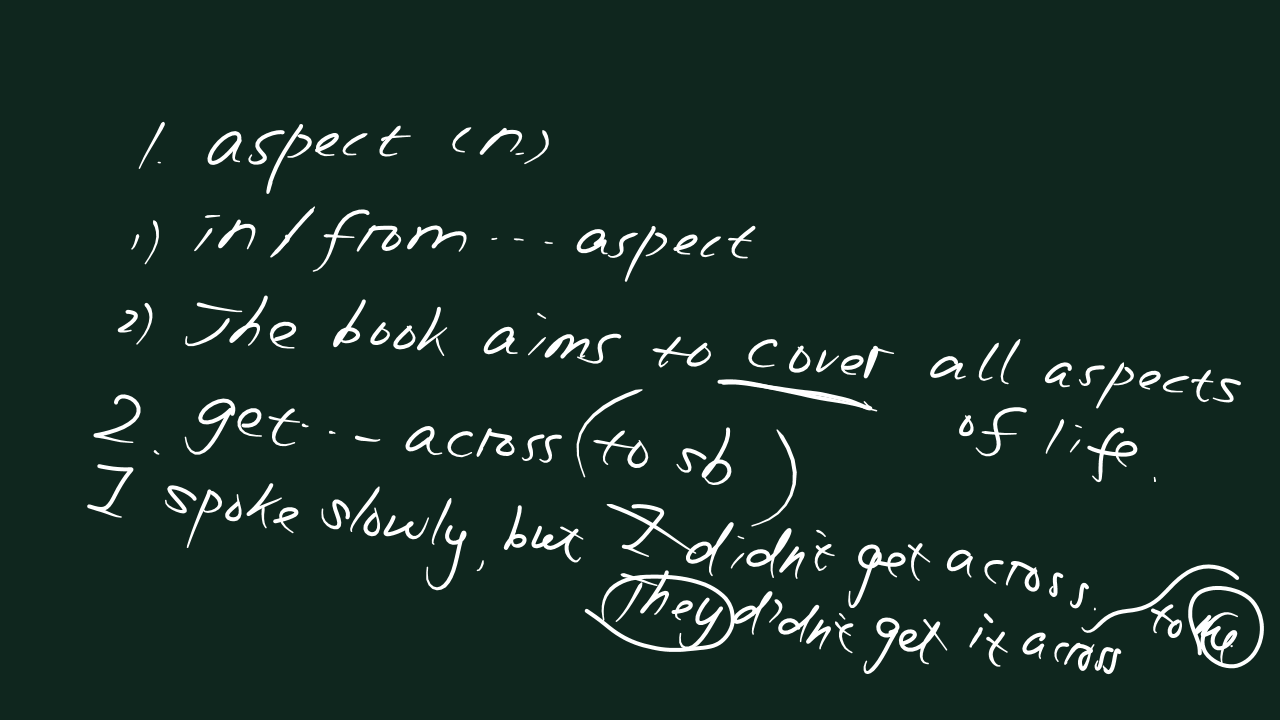 1. aspect (n.)
1) in / from ... aspect
2) The book aims to cover all aspects
of life.
2. get ... across (to sb)
I spoke slowly, but I didn't get across.
They didn't get it across to